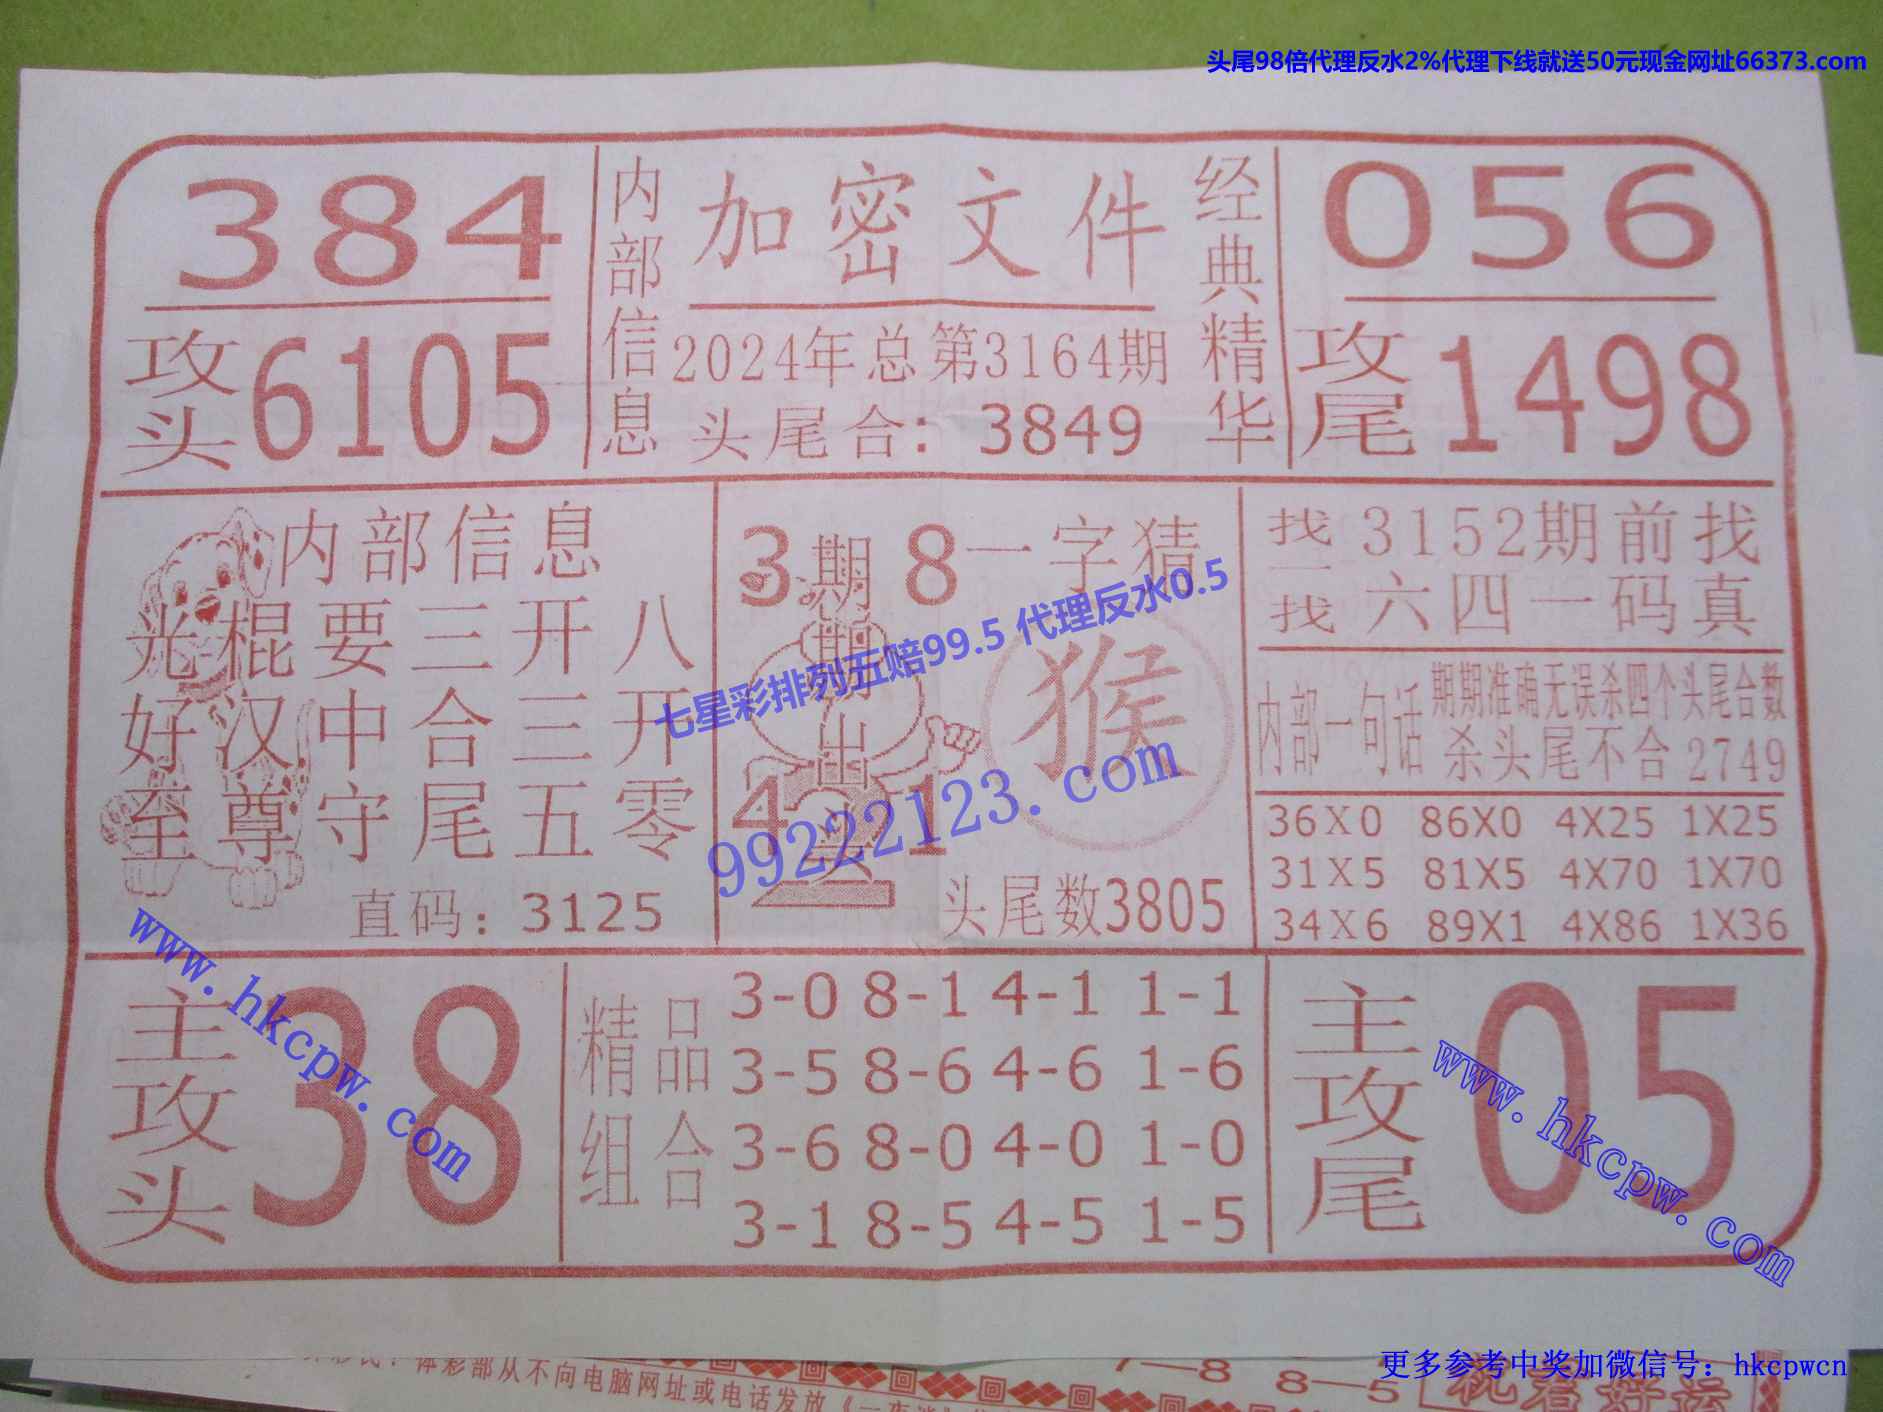 头尾98倍代理反水2%代理下线就送50元现金网址66373.com
384
攻头6105
内部信息
加密文件
2024年总第3164期
头尾合：3849
经典精华
056
攻尾1498
内部信息
光棍要三开八
好汉中合三开
至尊守尾五零
直码：3125
3期8
期
出
4头1
2
一字猜
猴
头尾数3805
七星彩排列五赔99.5 代理反水0.5
99222123.com
找一找
3152期前找
六四一码真
内部一句话
期期准确无误杀四个头尾合数
杀头尾不合2749
36X0 86X0 4X25 1X25
31X5 81X5 4X70 1X70
34X6 89X1 4X86 1X36
主攻头
38
www.hkcpw.com
精品组合
3-0 8-1 4-1 1-1
3-5 8-6 4-6 1-6
3-6 8-0 4-0 1-0
3-1 8-5 4-5 1-5
主攻尾
05
www.hkcpw.com
体彩部从不向电脑网址或电话发放
7—8
8—5
祝君好运
更多参考中奖加微信号：hkcpwcn